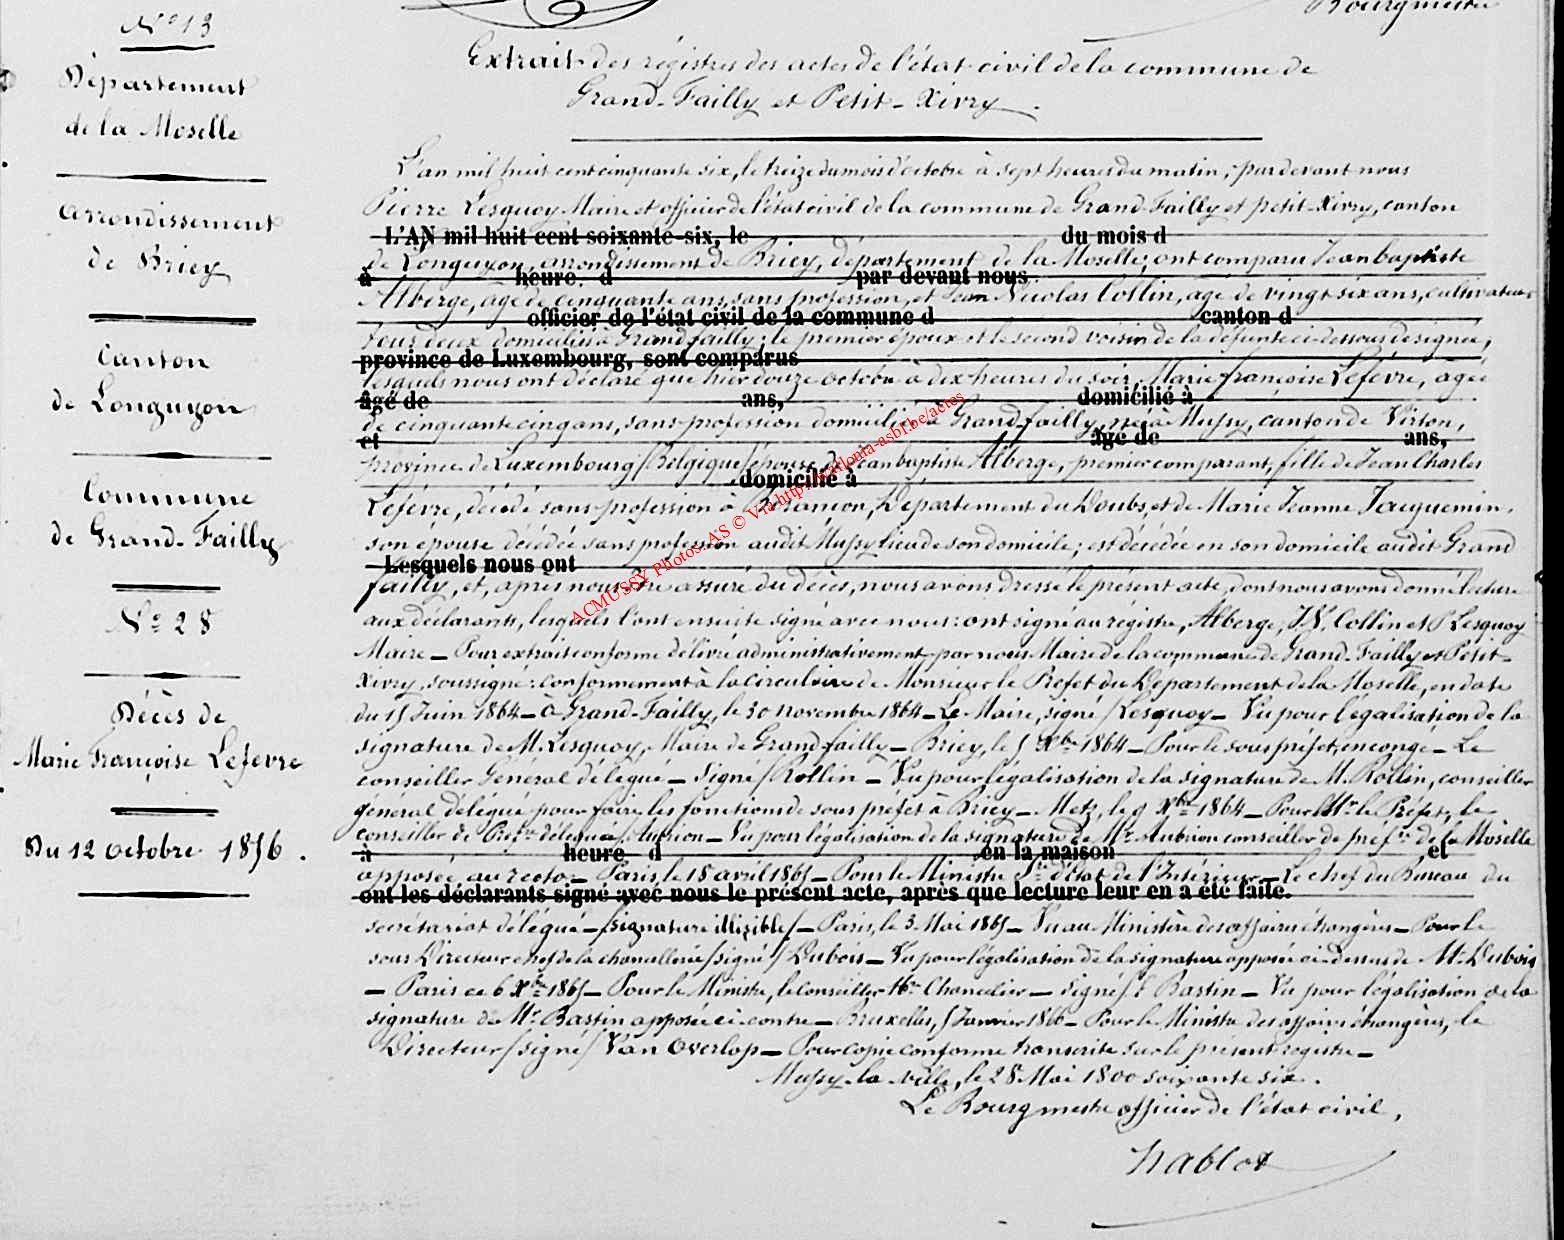 Bourgmestre
N° 13
Département
de la Moselle
Arrondissement
de Briey
Canton
de Longuyon
Commune
de Grand-Failly
N° 28
Décès de
Marie Françoise Lefevre
Du 12 octobre 1856.
Extrait des régistres des actes de l'état civil de la commune de
Grand-Failly et Petit-Xivry.
L'an mil huit cent cinquante six, le treize du mois d'octobre à sept heures du matin, pardevant nous
Pierre Lesquoy Maire et officier de l'état civil de la commune de Grand-Failly et petit-Xivry, canton
L'AN mil huit cent soixante-six, le du mois d
de Longuyon, arrondissement de Briey, département de la Moselle; ont comparu Jean baptiste
à heure. d par devant nous
Alberge, agé de cinquante ans, sans profession, et Jean Nicolas Collin, agé de vingt six ans, cultivateur
officier de l'état civil de la commune d canton d
tous deux domiciliés à Grandfailly; le premier époux et le second voisin de la défunte ci-dessous designée,
province de Luxembourg, sont comparus
lesquels nous ont déclaré que hier douze octobre à dix heures du soir, Marie françoise Lefévre, agée
âgé de ans, domicilié à
de cinquante cinq ans, sans profession domiciliée à Grand-failly, née à Mussy, canton de Virton,
et âgé de ans,
province de Luxembourg (Belgique) épouse de Jean baptiste Alberge, premier comparant, fille de Jean Charles
domicilié à
Lefévre, décédé sans profession à Besançon, Département du Doubs, et de Marie Jeanne Jacquemin,
son épouse décédée sans profession audit Mussy lieu de son domicile; est décédée en son domicile audit Grand
Lesquels nous ont
failly, et, après nous être assuré du décès, nous avons dressé le présent acte, dont nous avons donné lecture
aux déclarants, lesquels l'ont ensuite signé avec nous: ont signé au régistre, Alberge, J.N. Collin et P Lesquoy
Maire — Pour extrait conforme délivré administrativement par nous Maire de la commune de Grand-Failly et Petit-
Xivry, soussigné: conformement à la circulaire de Monsieur le Préfet du Département de la Moselle, en date
du 15 Juin 1864 — à Grand-Failly, le 30 novembre 1864 — Le Maire, signé / Lesquoy — Vu pour légalisation de la
signature de M. Lesquoy, Maire de Grandfailly — Briey, le 5 Xbre 1864 — Pour le sous préfet, en congé — Le
conseiller Général délégué — Signé / Rollin — Vu pour légalisation de la signature de M. Rollin, conseiller
général délégué pour faire les fonctions de sous préfet à Briey — Metz, le 9 Xbre 1864 — Pour Mr le Préfet, le
conseiller de Préfre délégué / Aubrion — Vu pour légalisation de la signature de Mr Aubrion conseiller de préfre de la Moselle
à heure d en la maison et
apposée au recto — Paris, le 18 avril 1865 — Pour le Ministre Sre d'état de l'Intérieur — Le chef du Bureau du
ont les déclarants signé avec nous le présent acte, après que lecture leur en a été faite.
secrétariat délégué — (signature illisible) — Paris, le 3 Mai 1865 — Vu au Ministère des affaires étrangères — Pour le
sous Directeur chef de la chancellerie / signé / Dubois — Vu pour légalisation de la signature apposée ci-dessus de Mr Dubois
— Paris ce 6 Xbre 1865 — Pour le Ministre, le conseiller Chancelier — signé / Bastin — Vu pour légalisation de la
signature de Mr Bastin apposée ci-contre — Bruxelles, 5 Janvier 1866 — Pour le Ministre des affaires étrangères, le
Directeur / signé / Van Overlop — Pour copie conforme transcrite sur le présent registre —
Mussy-la-ville, le 28 Mai 1800 soixante six.
Le Bourgmestre officier de l'état civil,
Nablot
ACMUSSY Photos: AS © Via http://wallonia-asbl.be/actes